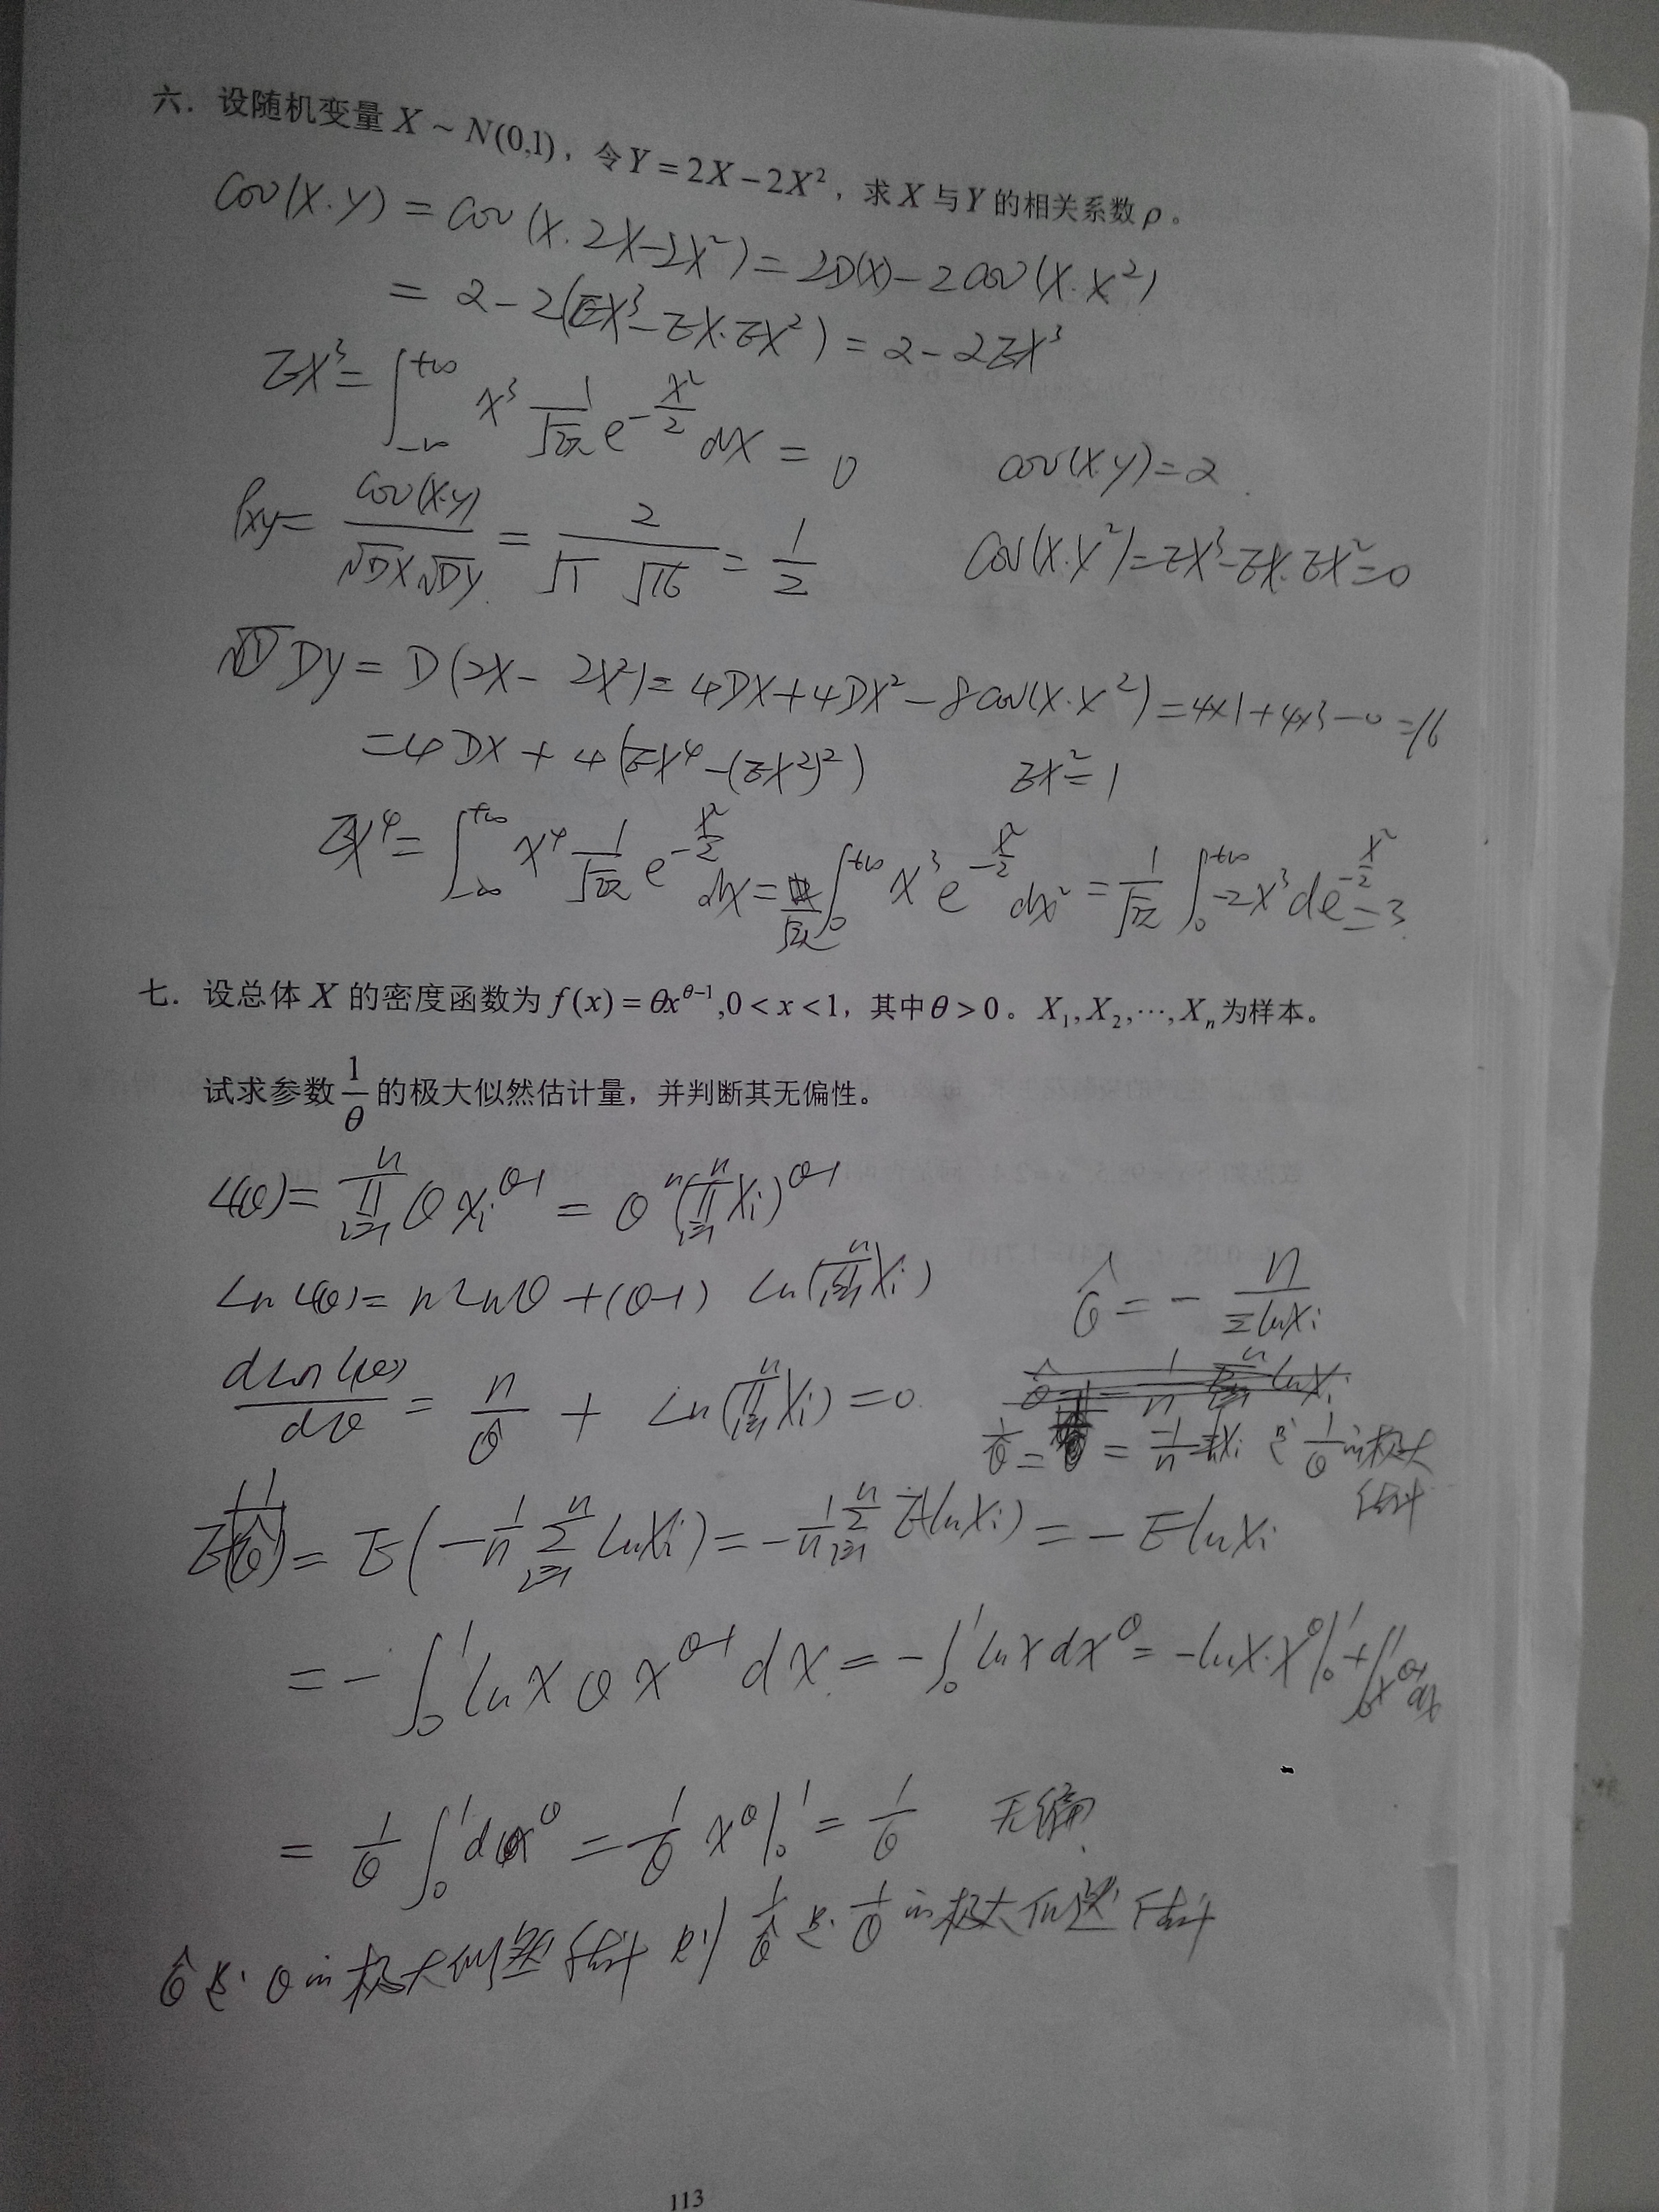 六. 设随机变量 X ~ N(0,1)，令Y = 2X − 2X²，求 X 与 Y 的相关系数 ρ。
Cov(X.Y) = Cov(X. 2X−2X²) = 2D(X) − 2Cov(X.X²)
= 2 − 2(EX³ − EX·EX²) = 2 − 2EX³
EX³ = ∫_{-∞}^{+∞} x³ 1/√2π e^{-x²/2} dx = 0
cov(X.Y) = 2
ρxy = Cov(X.Y)/(√DX √DY) = 2/(√1 √16) = 1/2
Cov(X.X²) = EX³ − EX·EX² = 0
DY = D(2X − 2X²) = 4DX + 4DX² − 8cov(X.X²) = 4×1 + 4×3 − 0 = 16
= 4DX + 4(EX⁴ − (EX²)²)
EX² = 1
EX⁴ = ∫_{-∞}^{+∞} x⁴ 1/√2π e^{-x²/2} dx = 1/√2π ∫_0^{+∞} x³ e^{-x²/2} dx² = 1/√2π ∫_0^{+∞} −2x³ de^{-x²/2} = 3
七. 设总体 X 的密度函数为 f(x) = θx^{θ−1}, 0 < x < 1，其中θ > 0。X₁, X₂, ⋯, Xₙ 为样本。
试求参数 1/θ 的极大似然估计量，并判断其无偏性。
L(θ) = ∏_{i=1}^n θ Xi^{θ-1} = θ^n (∏_{i=1}^n Xi)^{θ-1}
Ln L(θ) = n Ln θ + (θ-1) Ln(∏_{i=1}^n Xi)
θ̂ = − n/Σ ln Xi
d Ln L(θ)/dθ = n/θ + Ln(∏_{i=1}^n Xi) = 0
是 1/θ 的极大
估计
E(1/θ̂) = E(−1/n Σ_{i=1}^n ln Xi) = −1/n Σ_{i=1}^n E(ln Xi) = −E ln Xi
= −∫_0^1 ln x θ x^{θ-1} dx = −∫_0^1 ln x dx^θ = −ln x·x^θ |_0^1 + ∫_0^1 x^{θ-1} dx
= 1/θ ∫_0^1 dx^θ = 1/θ x^θ |_0^1 = 1/θ 无偏
θ̂ 是 θ 的极大似然估计 则 1/θ̂ 是 1/θ 的极大似然估计
113